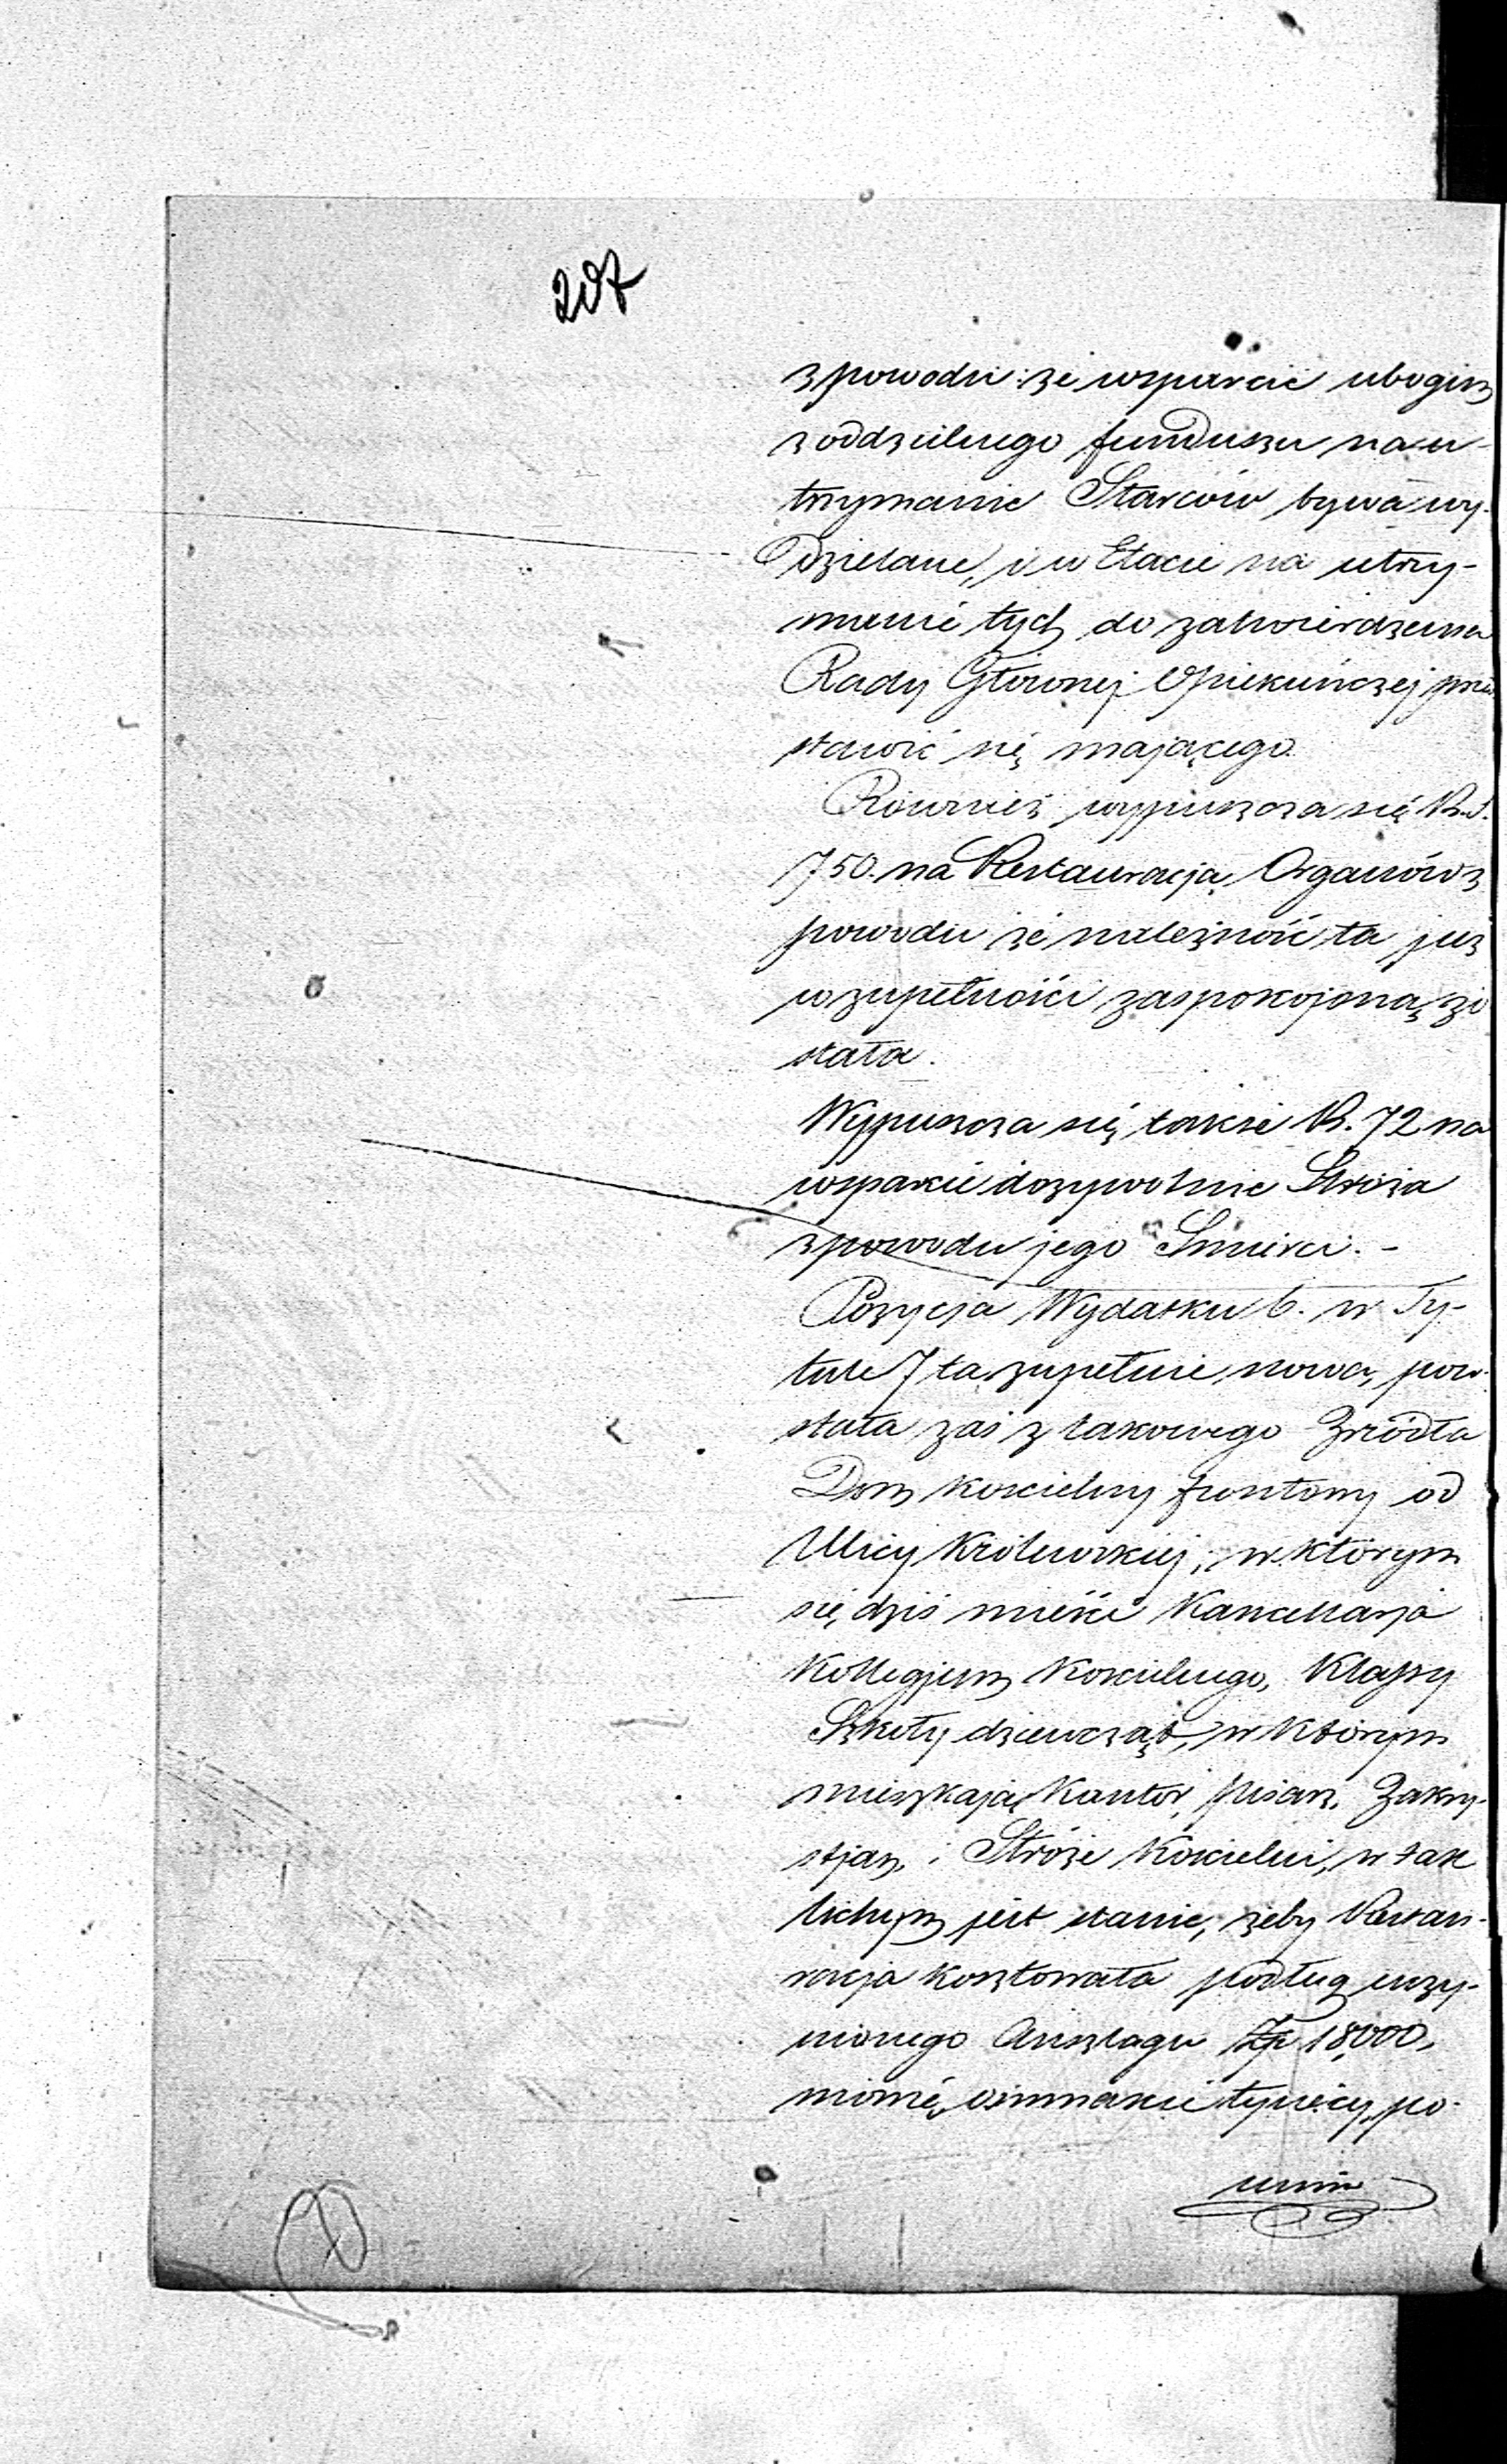 207
z powodu: że wsparcie ubogim
z oddzielnego funduszu na u-
trzymanie Starców bywa wy-
dzielane, i w Etacie na utrzy-
manie tych do zatwierdzenia
Rady Głównej Opiekuńczej
stawić się mającego.
Również wypuszcza się R.S.
750. na Restauracją Organów z
powodu że należność ta już
w zupełności zaspokojoną zo
stała.
Wypuszcza się także R. 72 na
wsparcie dożywotnie Stróża
z powodu jego Śmierci. -
Pozycja Wydatku 6. w Ty-
tule 7 ta zupełnie nowa, pow-
stała zaś z takowego Źródła
Dom kościelny frontowy od
Ulicy Królewskiej, w którym
się dziś mieści Kancellarja
Kollegjum Kościelnego, Klassy
Szkoły dziewcząt, w którym
mieszkają Kantor, pisarz, Zakry-
stjan i Stróże Kościelni, w tak
lichym jest stanie, żeby Restau-
racja kosztowała podług uczy-
nionego Anszlagu Złp 18,000,
mimo osimnaście tysięcy, po-